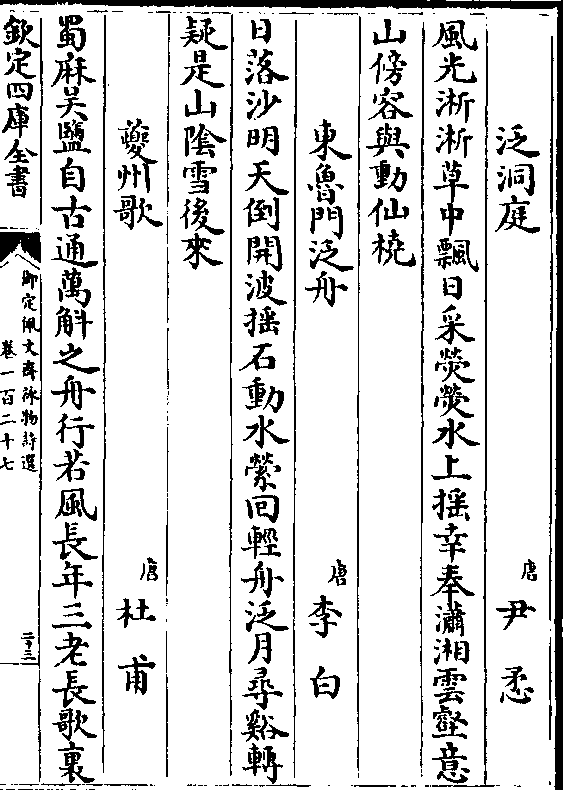 泛洞庭　唐　尹懋
風光淅淅草中飄日采熒熒水上揺幸奉瀟湘雲壑意
山傍容與動仙橈
東魯門泛舟　唐　李白
日落沙明天倒開波揺石動水縈回輕舟泛月尋谿轉
疑是山隂雪後來
夔州歌　唐　杜甫
蜀麻吳鹽自古通萬斛之舟行若風長年三老長歌裏
欽定四庫全書
御定佩文齋詠物詩選
卷一百二十七